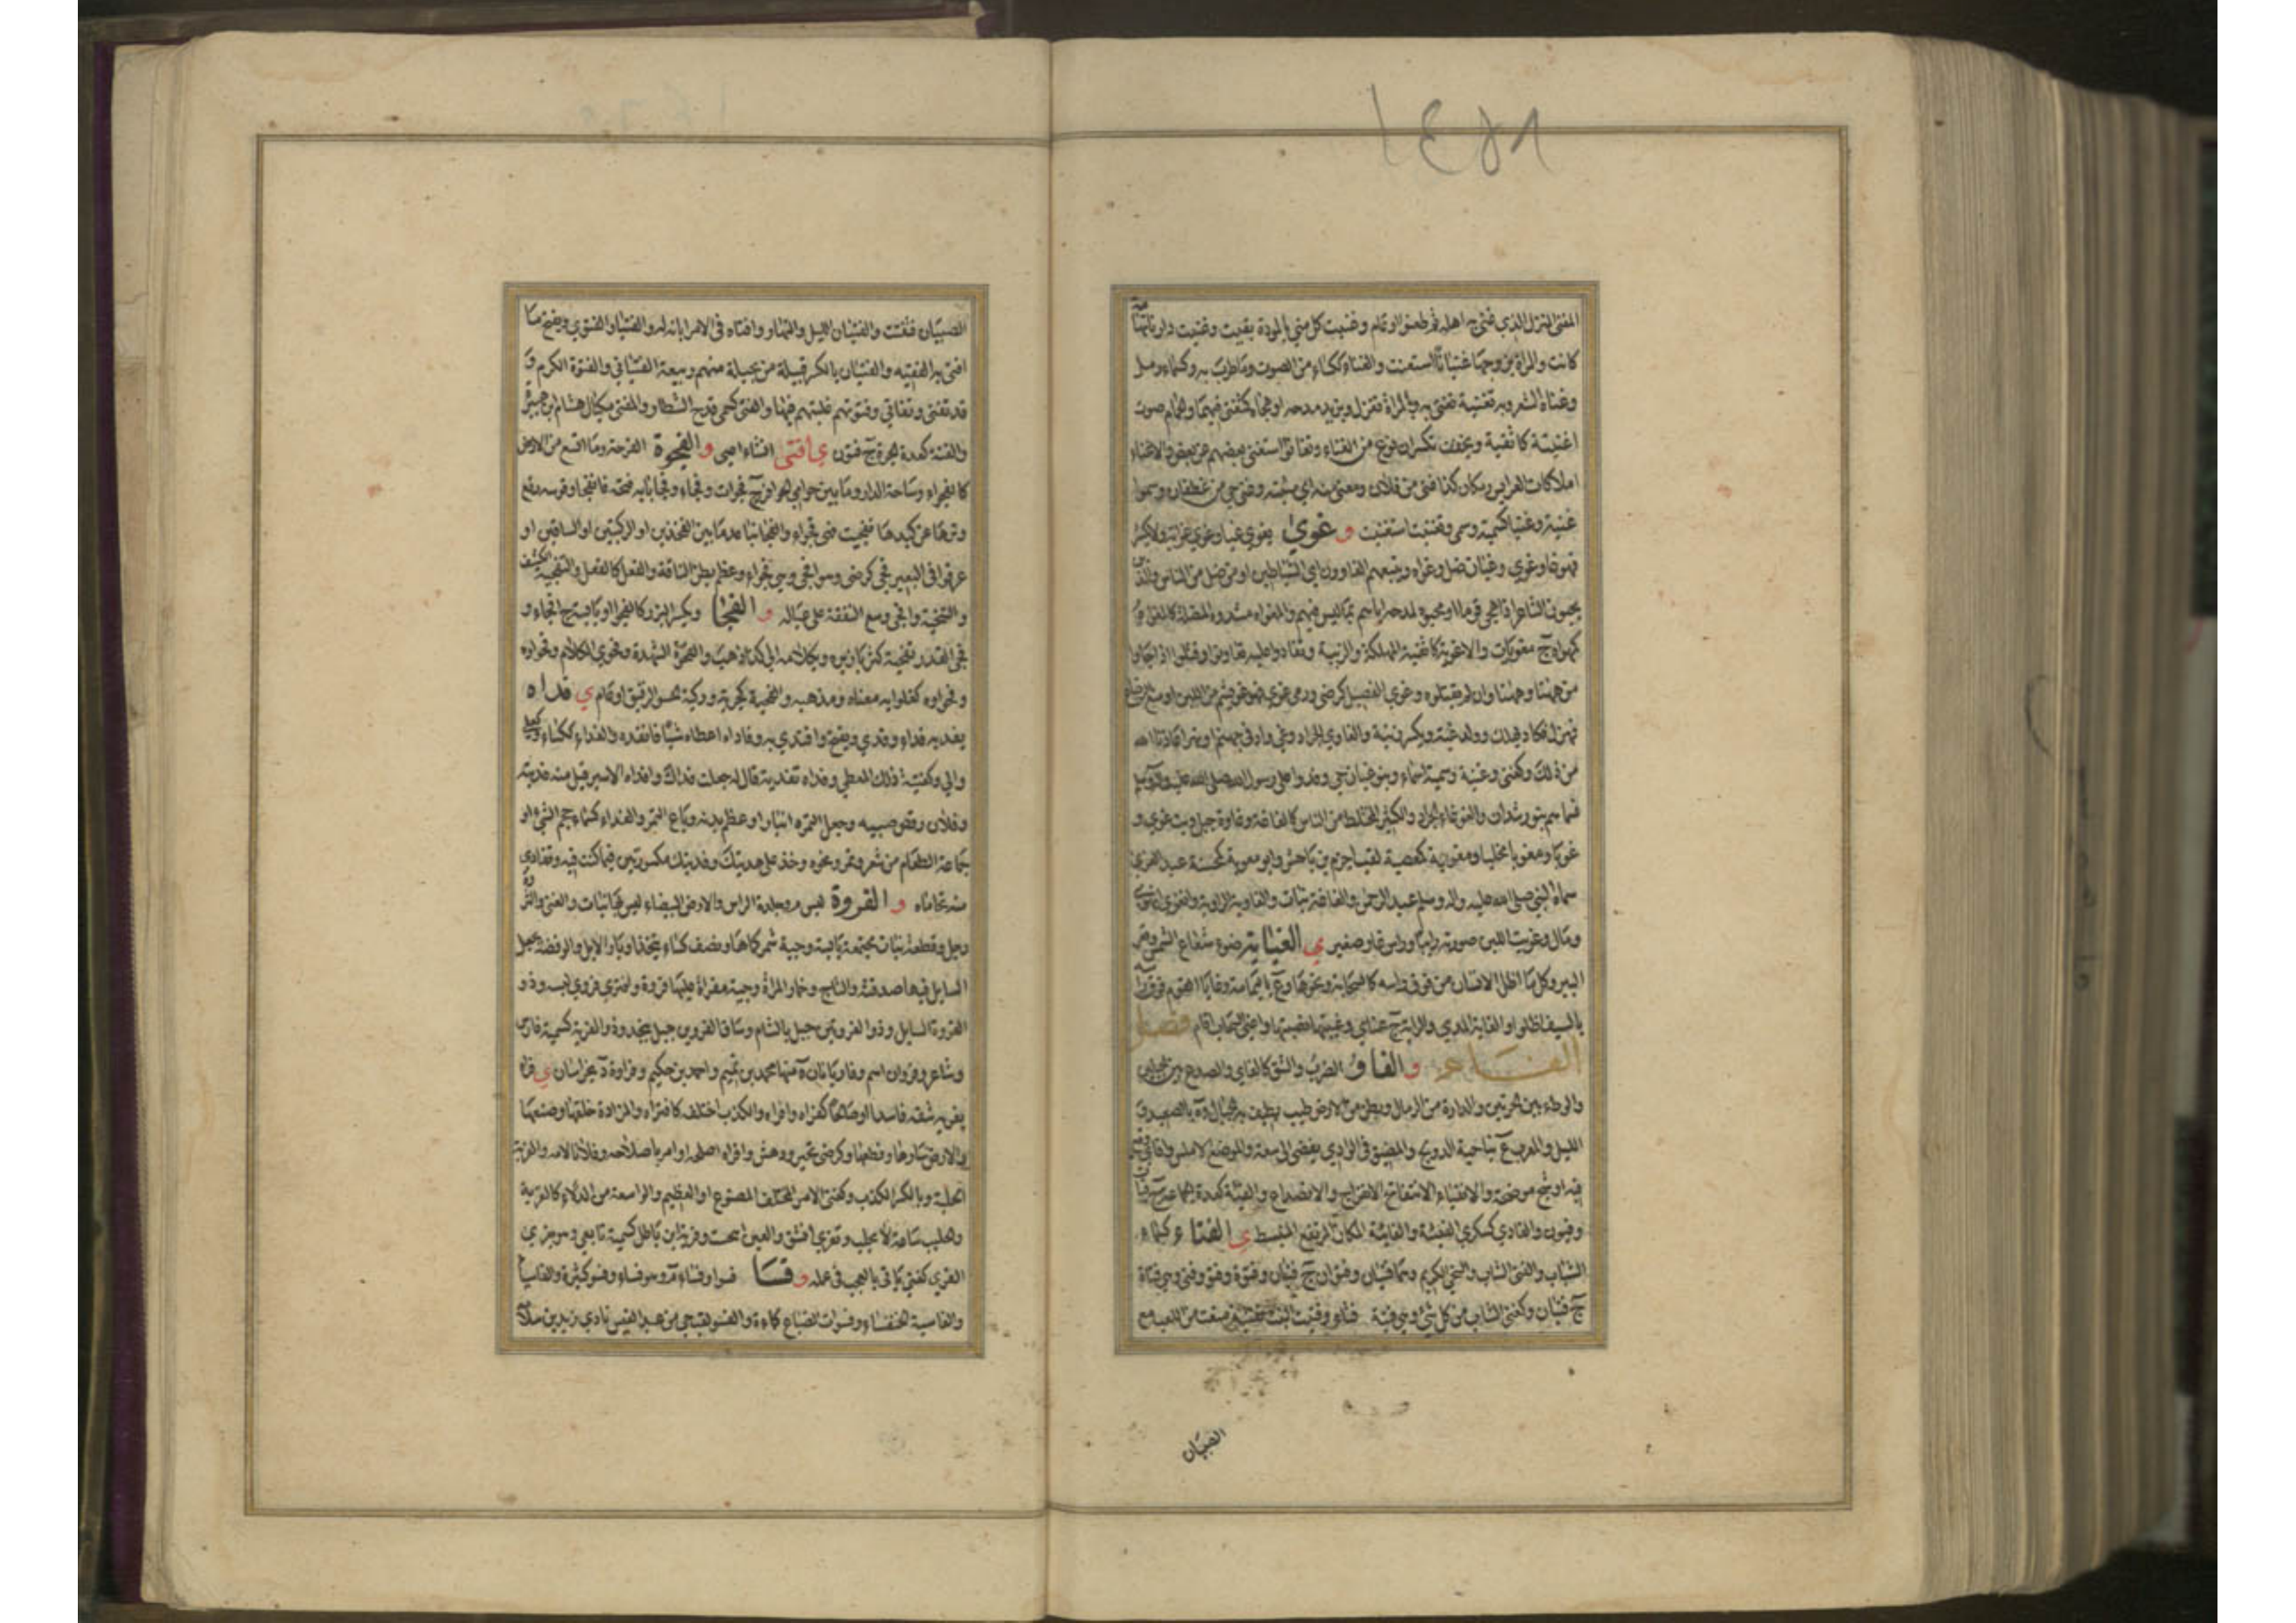 المغنى المنزل الذي غني به اهله ثم ظعنوا او عام وغنيت لك مني بالمودة بقيت وغنيت دارنا تهامة
كانت والمراة بزوجها غنيانا استغنت والغناء ككساء من الصوت ما طرب به وكسماء رمل
وغناه الشعر وبه تغنية تغنى به وبالمراة تغزل وبزيد مدحه او هجاه كتغنى فيهما والحمام صوت
اغنية كاثفية ويخفف وتكسران نوع من الغناء وتغانوا استغنى بعضهم عن بعض والاغناء
املاكات العرايس ومكان كذا غنى من فلان ومغنى منه اي مئنة وغني حي من غطفان وسموا
غنية وغنيا كسمية وسمي وتغنيت استغنيت و غوى يغوي غيا وغوي غواية ولا يكسر
فهو غاو وغوي وغيان ضل وغواه ويتبعهم الغاوون اي الشياطين او من ضل من الناس والذين
يحبون الشاعر اذا هجى قوما او محبوه لمدحه اياهم بما ليس فيهم والمغواه مشددة المضلة كالمغواة
كمهواة ج مغويات والاغوية كاثفية المهلكة والزبية وتغاووا عليه تعاونوا فقتلوه او جاؤا
من ههنا وههنا وان لم يقتلوه وغوي الفصيل كرضي ورمى غوى فهو غو بشم من اللبن او منع الرضاع
فهزل فكاد يهلك وولد غية ويكسر زنية والغاوي الجراد وغي واد في جهنم او نهر اعاذنا الله
من ذلك وكغني وغنية وسمية اسماء وبنو غيان حي وفدوا على رسول الله صلى الله عليه واله وسلم
فسماهم بنو رشدان والغوغاء الجراد والكثير المختلط من الناس كالغاغة وغاوة جبل وبت غوى و
غويا ومغويا مخليا ومغوية كمعصية لقب اجرم بن ناهس وابو مغوية كمحسنة عبد العزى
سماه النبي صلى الله عليه واله وسلم عبد الرحمن والغاغة نبات والغاوية الراوية وانغوى انهوى
ومال وغويت اللبن صيرته رايبا وراس غاو صغير ي الغياية ضوء شعاع الشمس وقعر
البير وكل ما اظل الانسان من فوق راسه كالسحابة ونحوها وع باليمامة وغايا القوم فوق راسه
بالسيف اظلوا والغاية المدى والراية ج غاي وغييتها نصبتها واغيى السحاب اقام فصل
الفاء و الفاو الضرب والشق كالفاي والصدع بين جبلين
والوطء بين الحرتين والدارة من الرمال وبطن من الارض طيب تطيف به الجبال وة بالصعيد و
الليل والمغرب وع بناحية الدولج والمضيق في الوادي يفضي الى سعة والموضع الاملس وافاى وقع
فيه او شج موضحة والانفياء الانفتاح الانفراج والانصداع والفئة كعدة الجماعة ج فئات
وفئون والفاوى كسكرى الفيشة والفائية المكان المرتفع المنبسط ي الفتاء كسماء
الشباب والفتى الشاب والسخي الكريم وهما فتيان وفتوان ج فتيان وفتوة وفتو وفتي وهي فتاة
ج فتيات وكغني الشاب من كل شئ وهي فتية فتاء وفتيت البنت تفتية منعت من اللعب مع
الصبيان
الصبيان ففتت والفتيان الليل والنهار وافتاه في الامر ابانه له والفتيا والفتوى ويفتح ما
افتى به الفقيه والفتيان بالكسر قبيلة من بجيلة منهم ربيعة الفتياني والفتوة الكرم و
قد تفتى وتفاتى وفتوتهم غلبتهم فيها والفتى كسمى قدح الشطار والمفتي مكيال هشام ابن هبيرة
والفتة كعدة الحرة ج فتون ي افثى افثاء اعيى و الفجوة الفرجة وما اتسع من الارض
كالفجواء وساحة الدار وما بين حوامي الحوافر ج فجوات وفجاء وفجا بابه فتحه فانفجى وقوسه رفع
وترها عن كبدها ففجيت فهي فجواء والفجا تباعد ما بين الفخذين او الركبتين او الساقين او
عرقوبي البعير فجي كرضي وهو افجى وهي فجواء وعظم بطن الناقة والفعل كالفعل والتفجية الكشف
والتنحية وافجى وسع النفقة على عياله و الفحا ويكسر البزر كالفحواء او يابسه ج افحاء و
فحى القدر تفحية كثر بازيره وبكلامه الى كذا ذهب والفحوة الشهدة وفحوى الكلام وفحواؤه
وفحواوه كغلوايه معناه ومذهبه والفحية كجرية وركية الحسو الرقيق او عام ي فداه
يفديه فداء وفدى ويفتح وافتدى به وفاداه اعطاه شيئا فانقذه والفداء ككساء وكعلى
والى وكفتية ذلك المعطى وفداه تفدية قال له جعلت فداك وافداه الاسير قبل منه فديته
وفلان رقص صبيه وجعل لتمره انبارا وعظم بدنه وباع التمر والفداء كسماء حجم الشئ او
جماعة الطعام من شعير وتمر ونحوه وخذ على هديتك وفديتك مكسورتين فيما كنت فيه وتفادى
منه تحاماه و الفروة لبس م وجلدة الراس والارض البيضاء ليس فيها نبات والغنى والثروة
ورجل وقطعة نبات مجتمعة يابسة وجبة شمر كاها ونصف كساء يتخذ من اوبار الابل والوفضة يجعل
السايل فيها صدقته والتاج وخمار المراة وجبة مفراة عليها فروة وافترى فروى لبسه وذو
الفروة السايل وذو الفروين جبل بالشام وساق الفروين جبل بنجد وذو الفرية كسمية فارس
وشاعر وفروان اسم وفاريابان ة منها محمد بن تميم واحمد بن حكيم وفراوة د بخراسان ي فراه
يفريه شقه فاسدا او صالحا كفراه وافراه والكذب اختلقه كافتراه والمزادة خلقها وصنعها
والارض سارها وقطعها وكرضي تحير ودهش وافراه اصلحه او امر باصلاحه وفلانا لامه والفرية
الجلبة وبالكسر الكذب وكغني الامر المختلق المصنوع او العظيم والواسعة من الدلاء كالفرية
والحليب ساعة يحلب وتفرى انشق والعين انبجست وفرية ابن ماطل كسمية تابعي وهو يفري
الفري كغني ياتي بالعجب في عمله و فسا فسوا وفساء م وهو فساء وفسو كثيره والفاسيا
والفاسية الخنفساء وفسوات الضباع كماءة والفسو لقب حي من عبد القيس نادى زيد بن سلامة